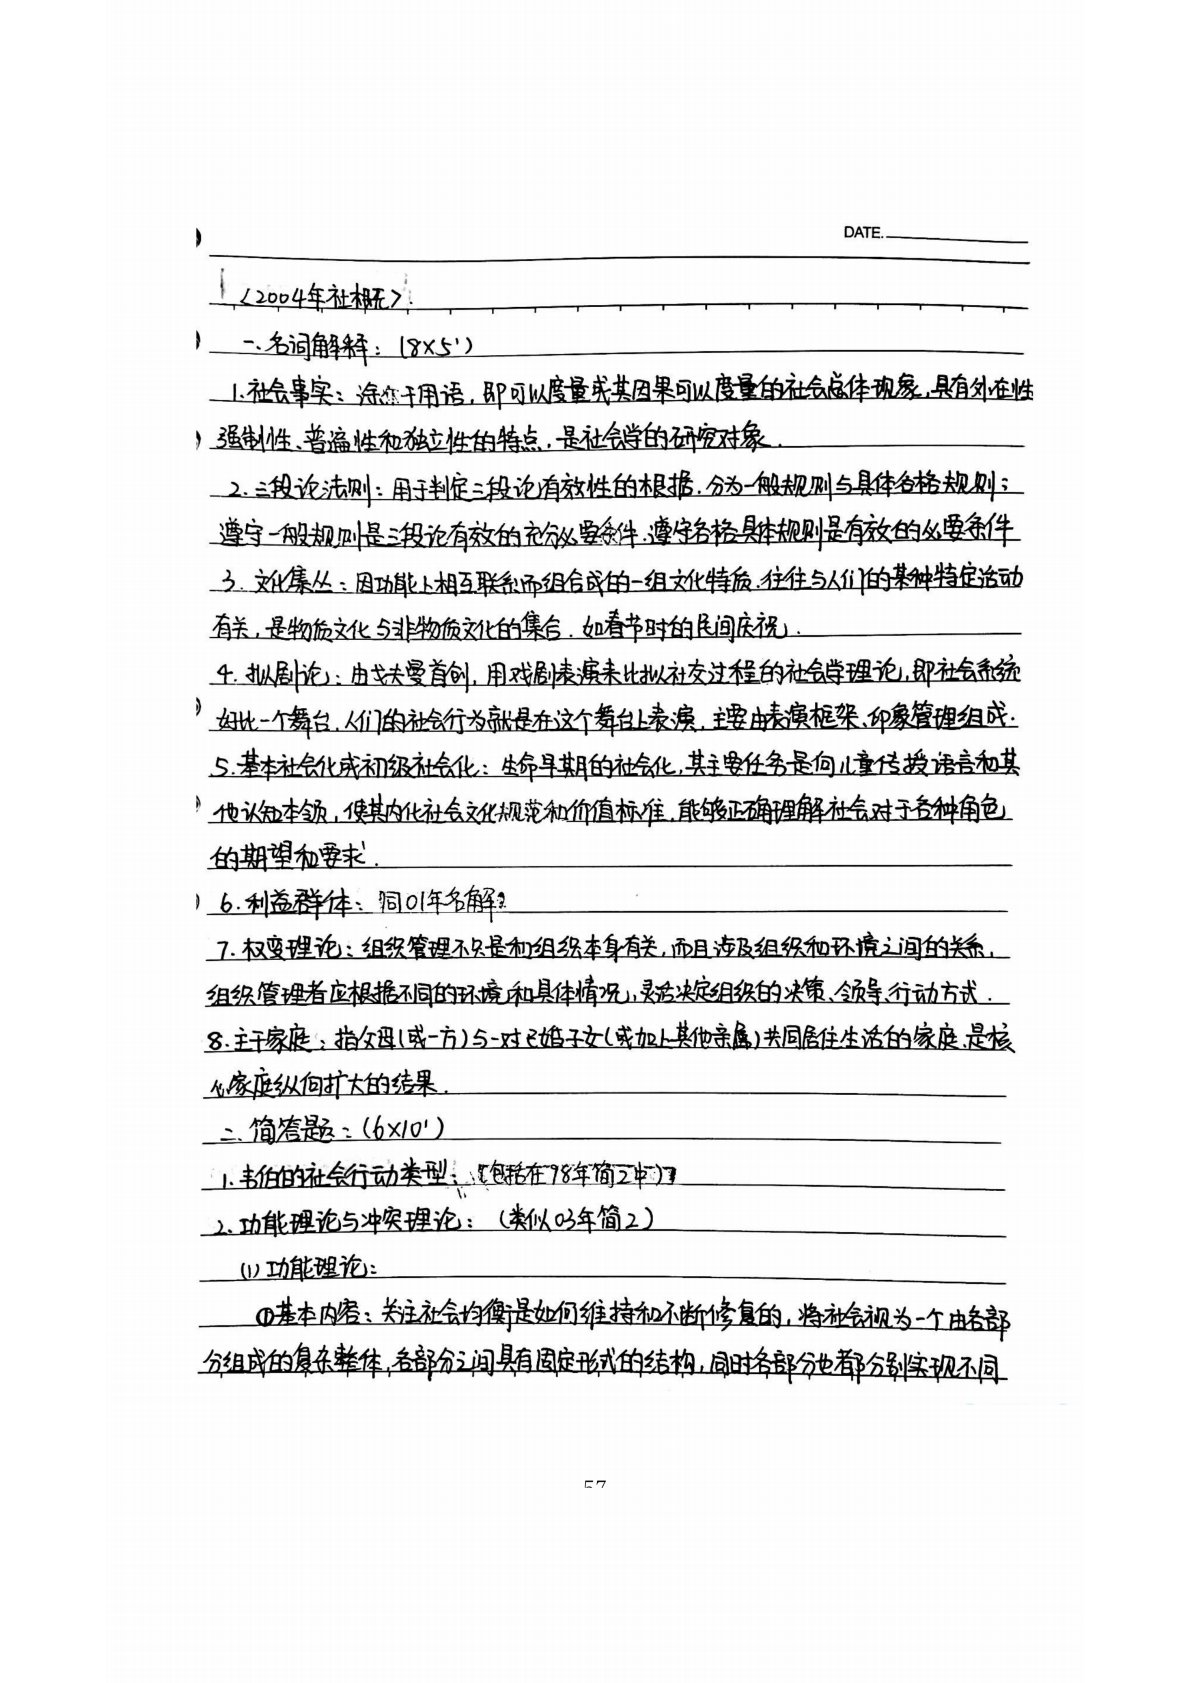 DATE.
〈2004年社概〉
一、名词解释：(8×5')
1.社会事实：涂尔干用语，即可以度量或其因果可以度量的社会总体现象，具有外在性
强制性、普遍性和独立性的特点，是社会学的研究对象．
2.三段论法则：用于判定三段论有效性的根据．分为一般规则与具体各格规则；
遵守一般规则是三段论有效的充分必要条件．遵守各格具体规则是有效的必要条件
3. 文化集丛：因功能上相互联系而组合成的一组文化特质．往往与人们的某种特定活动
有关，是物质文化与非物质文化的集合．如春节时的民间庆祝．
4.拟剧论：由戈夫曼首创，用戏剧表演来比拟社交过程的社会学理论，即社会系统
好比一个舞台，人们的社会行为就是在这个舞台上表演，主要由表演框架、印象管理组成．
5.基本社会化或初级社会化：生命早期的社会化，其主要任务是向儿童传授语言和其
他认知本领，使其内化社会文化规范和价值标准，能够正确理解社会对于各种角色
的期望和要求．
6.利益群体：同01年名解2
7.权变理论：组织管理不只是和组织本身有关，而且涉及组织和环境之间的关系，
组织管理者应根据不同的环境和具体情况，灵活决定组织的决策、领导、行动方式．
8.主干家庭：指父母(或一方)与一对已婚子女(或加上其他亲属)共同居住生活的家庭，是核
心家庭纵向扩大的结果．
二、简答题：(6×10')
1.韦伯的社会行动类型：(包括在98年简2中)
2.功能理论与冲突理论：(类似03年简2)
(1)功能理论：
①基本内容：关注社会均衡是如何维持和不断修复的，将社会视为一个由各部
分组成的复杂整体，各部分之间具有固定形式的结构，同时各部分也都分别实现不同
57